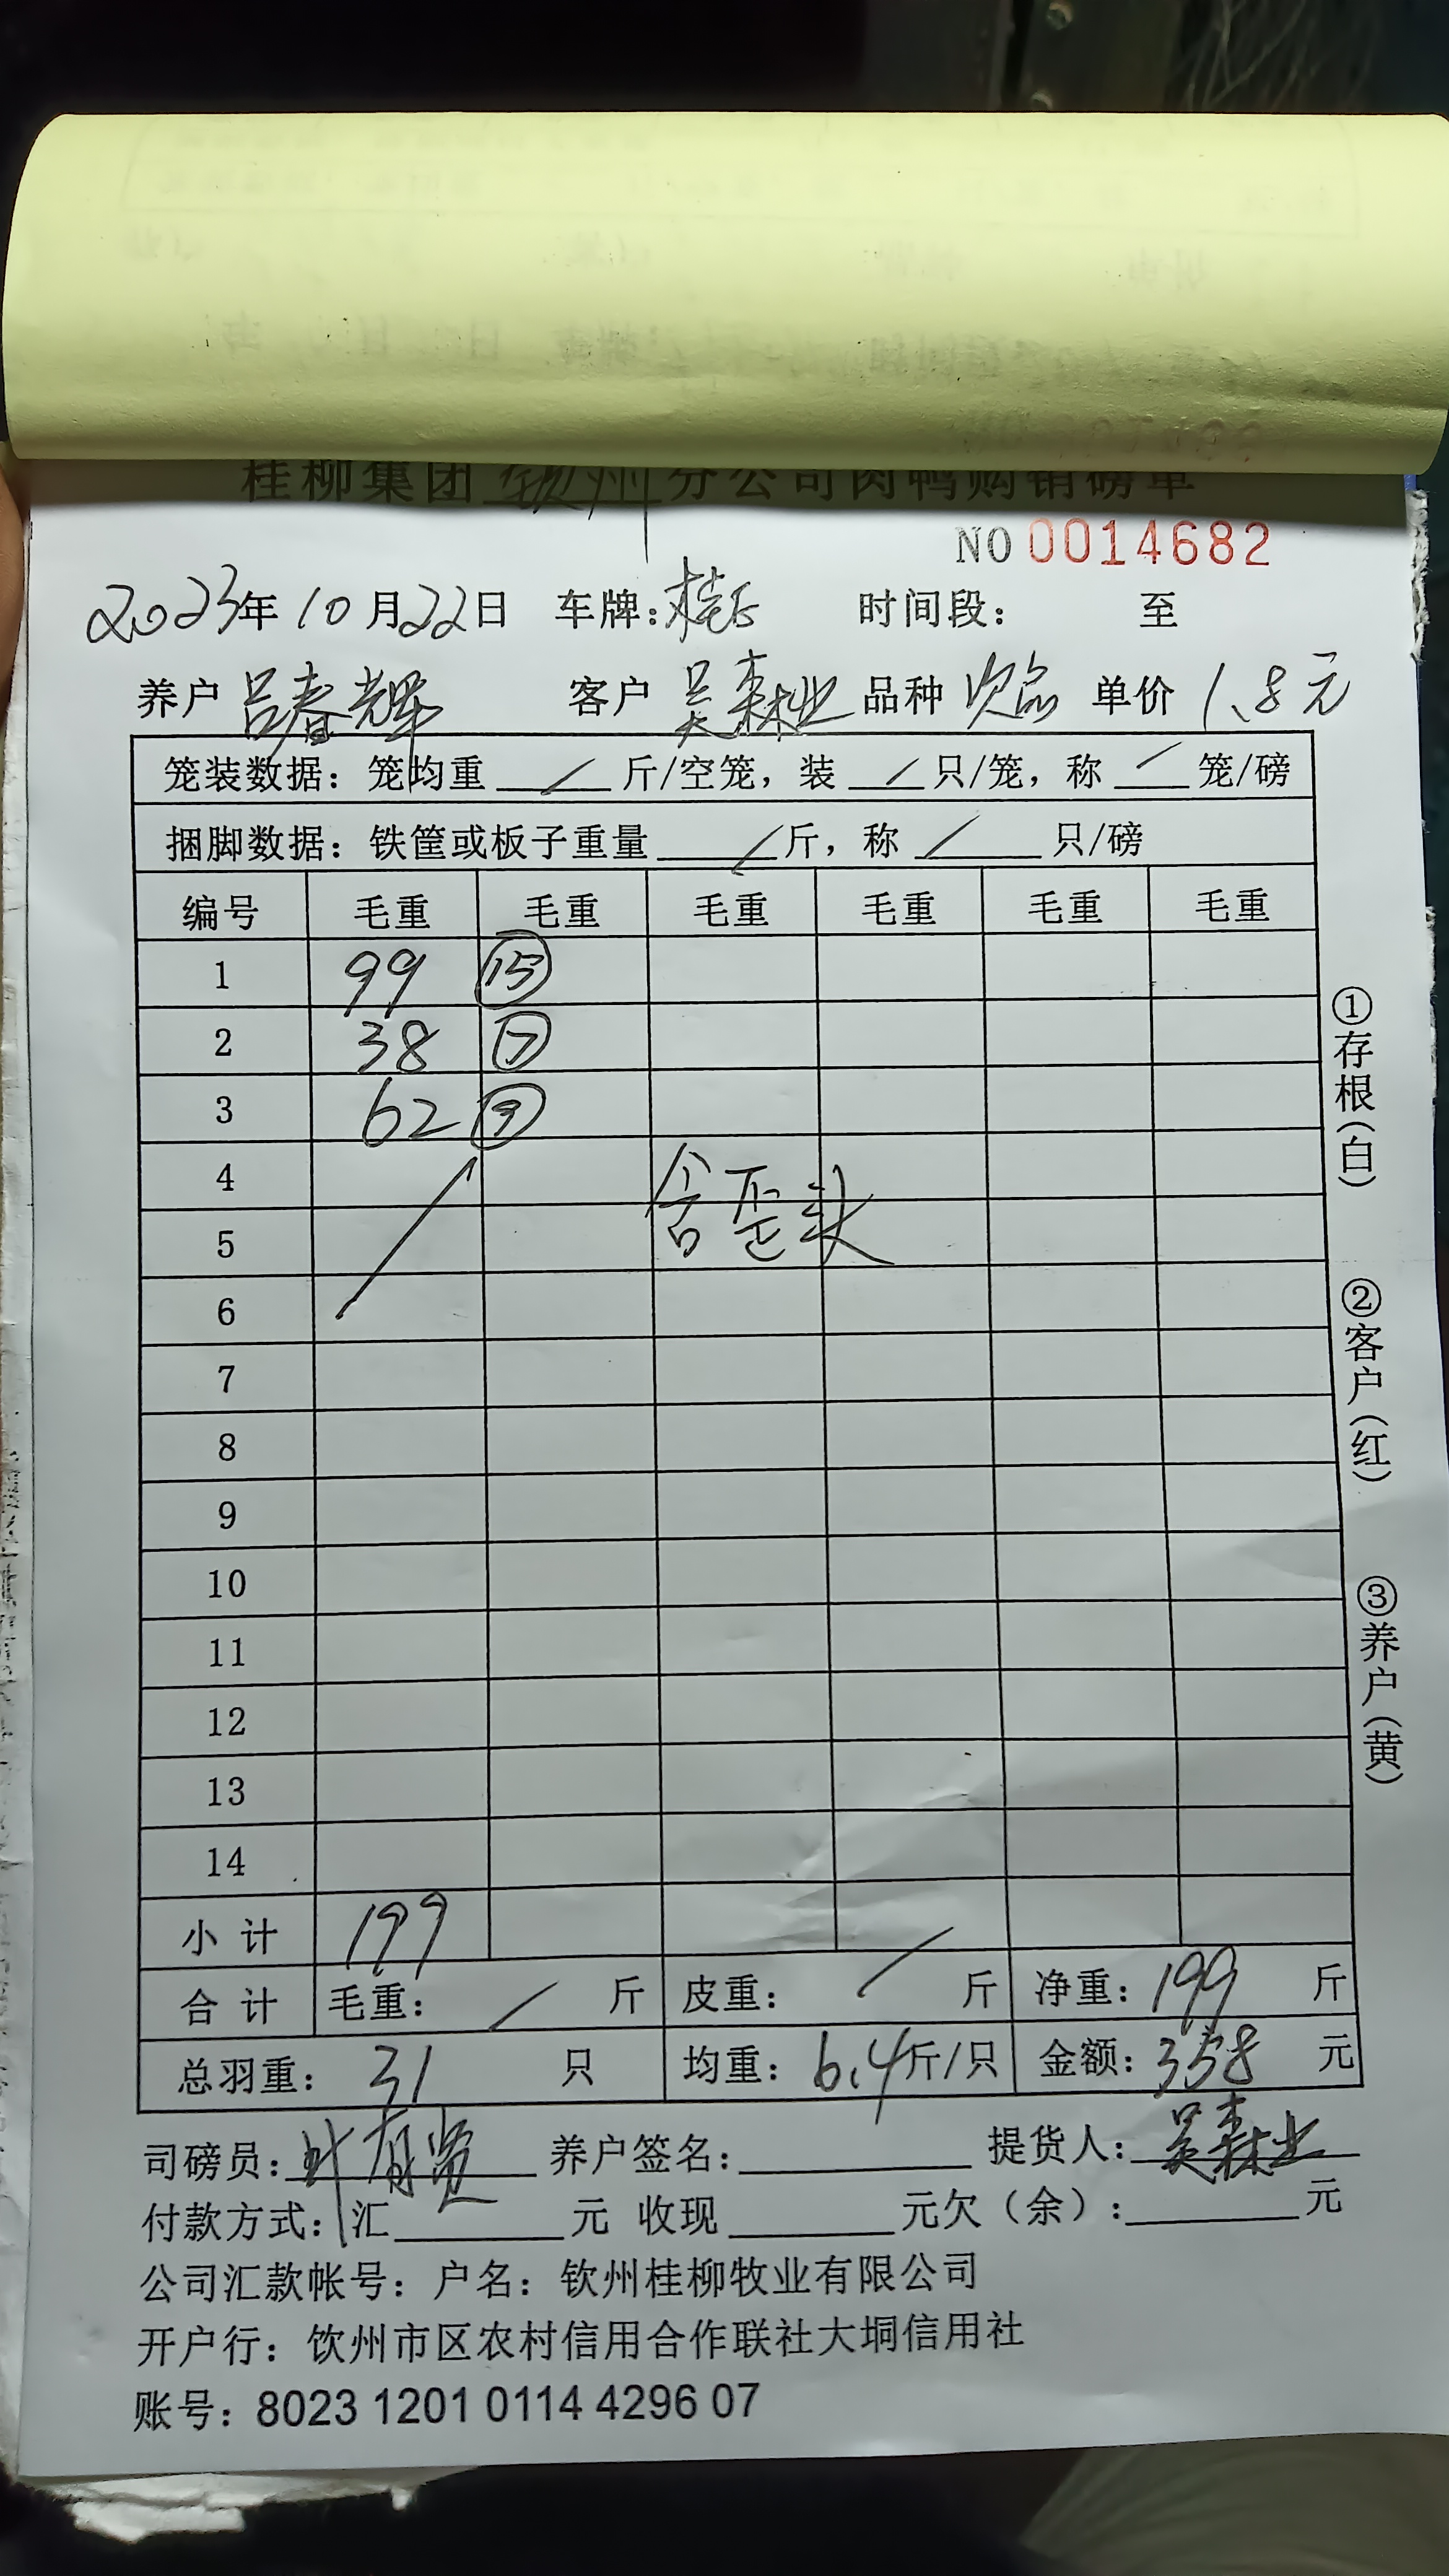 桂柳集团 钦州 分公司肉鸭购销磅单
NO 0014682
2023年 10 月 22 日 车牌: 时间段: 至
养户 吕春辉 客户 吴森业 品种 次品 单价 1.8元
笼装数据: 笼均重 / 斤/空笼, 装 / 只/笼, 称 / 笼/磅
捆脚数据: 铁筐或板子重量 / 斤, 称 / 只/磅
编号 毛重 毛重 毛重 毛重 毛重 毛重
1 99 ⑮
2 38 ⑦
3 62 ⑨
4
含歪头
5
6
7
8
9
10
11
12
13
14
小 计 199
合 计 毛重: / 斤 皮重: / 斤 净重: 199 斤
总羽重: 31 只 均重: 6.4斤/只 金额: 358 元
司磅员: 叶有贤 养户签名: 提货人: 吴森业
付款方式: 汇 元 收现 元欠(余): 元
公司汇款帐号: 户名: 钦州桂柳牧业有限公司
开户行: 钦州市区农村信用合作联社大垌信用社
账号: 8023 1201 0114 4296 07
①存根(白)
②客户(红)
③养户(黄)